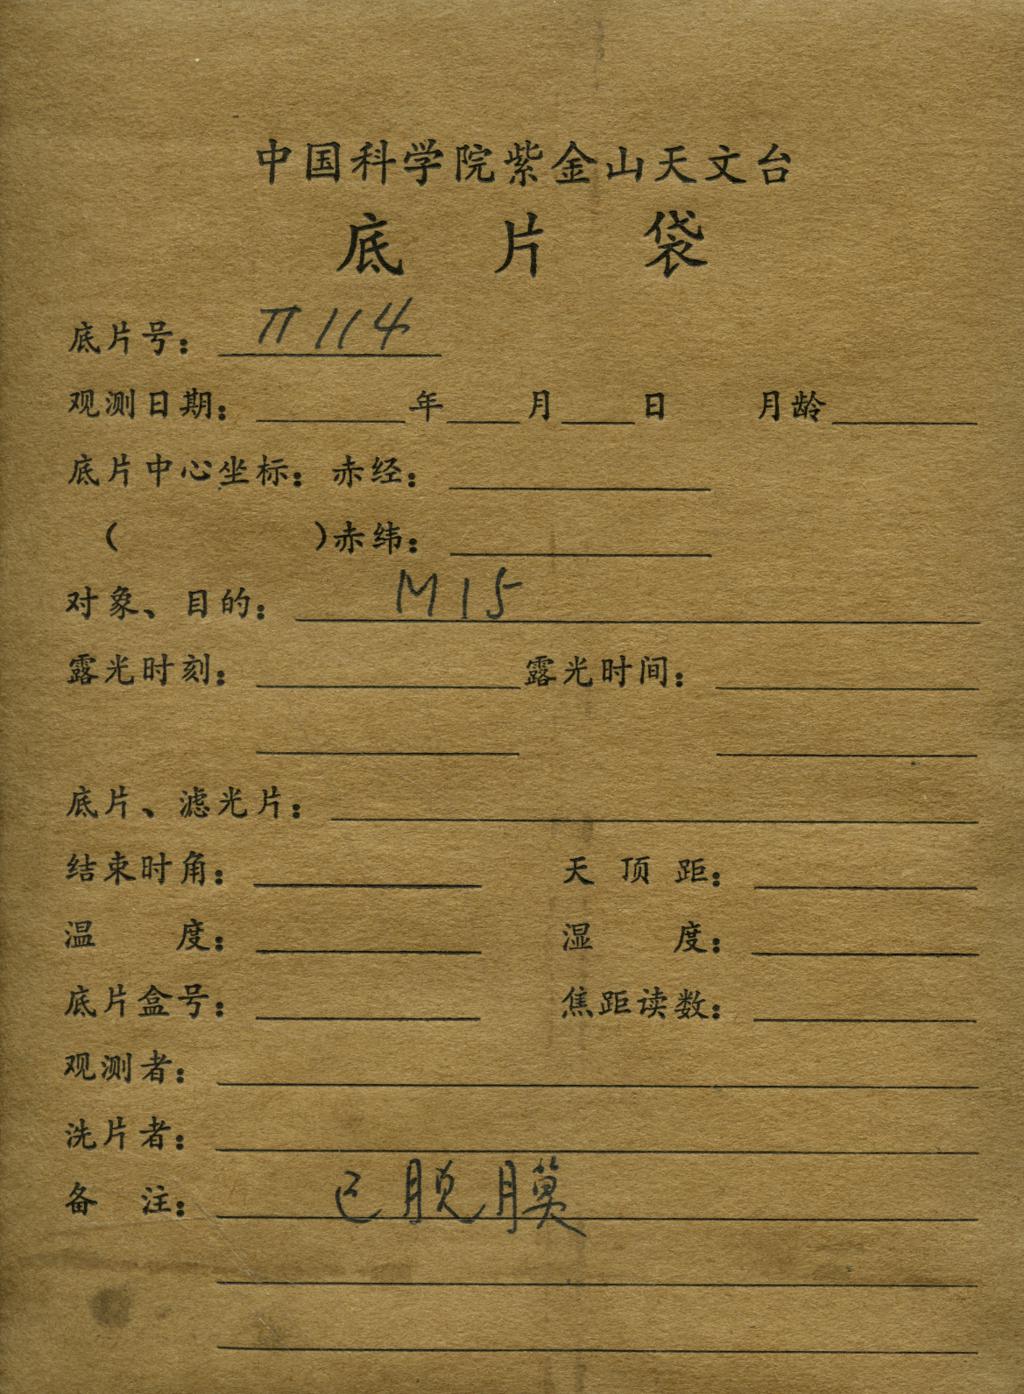 中国科学院紫金山天文台
底片袋
底片号：π114
观测日期：年月日 月龄
底片中心坐标：赤经：
（ ）赤纬：
对象、目的：M15
露光时刻： 露光时间：
底片、滤光片：
结束时角： 天顶距：
温度： 湿度：
底片盒号： 焦距读数：
观测者：
洗片者：
备注：已脱膜